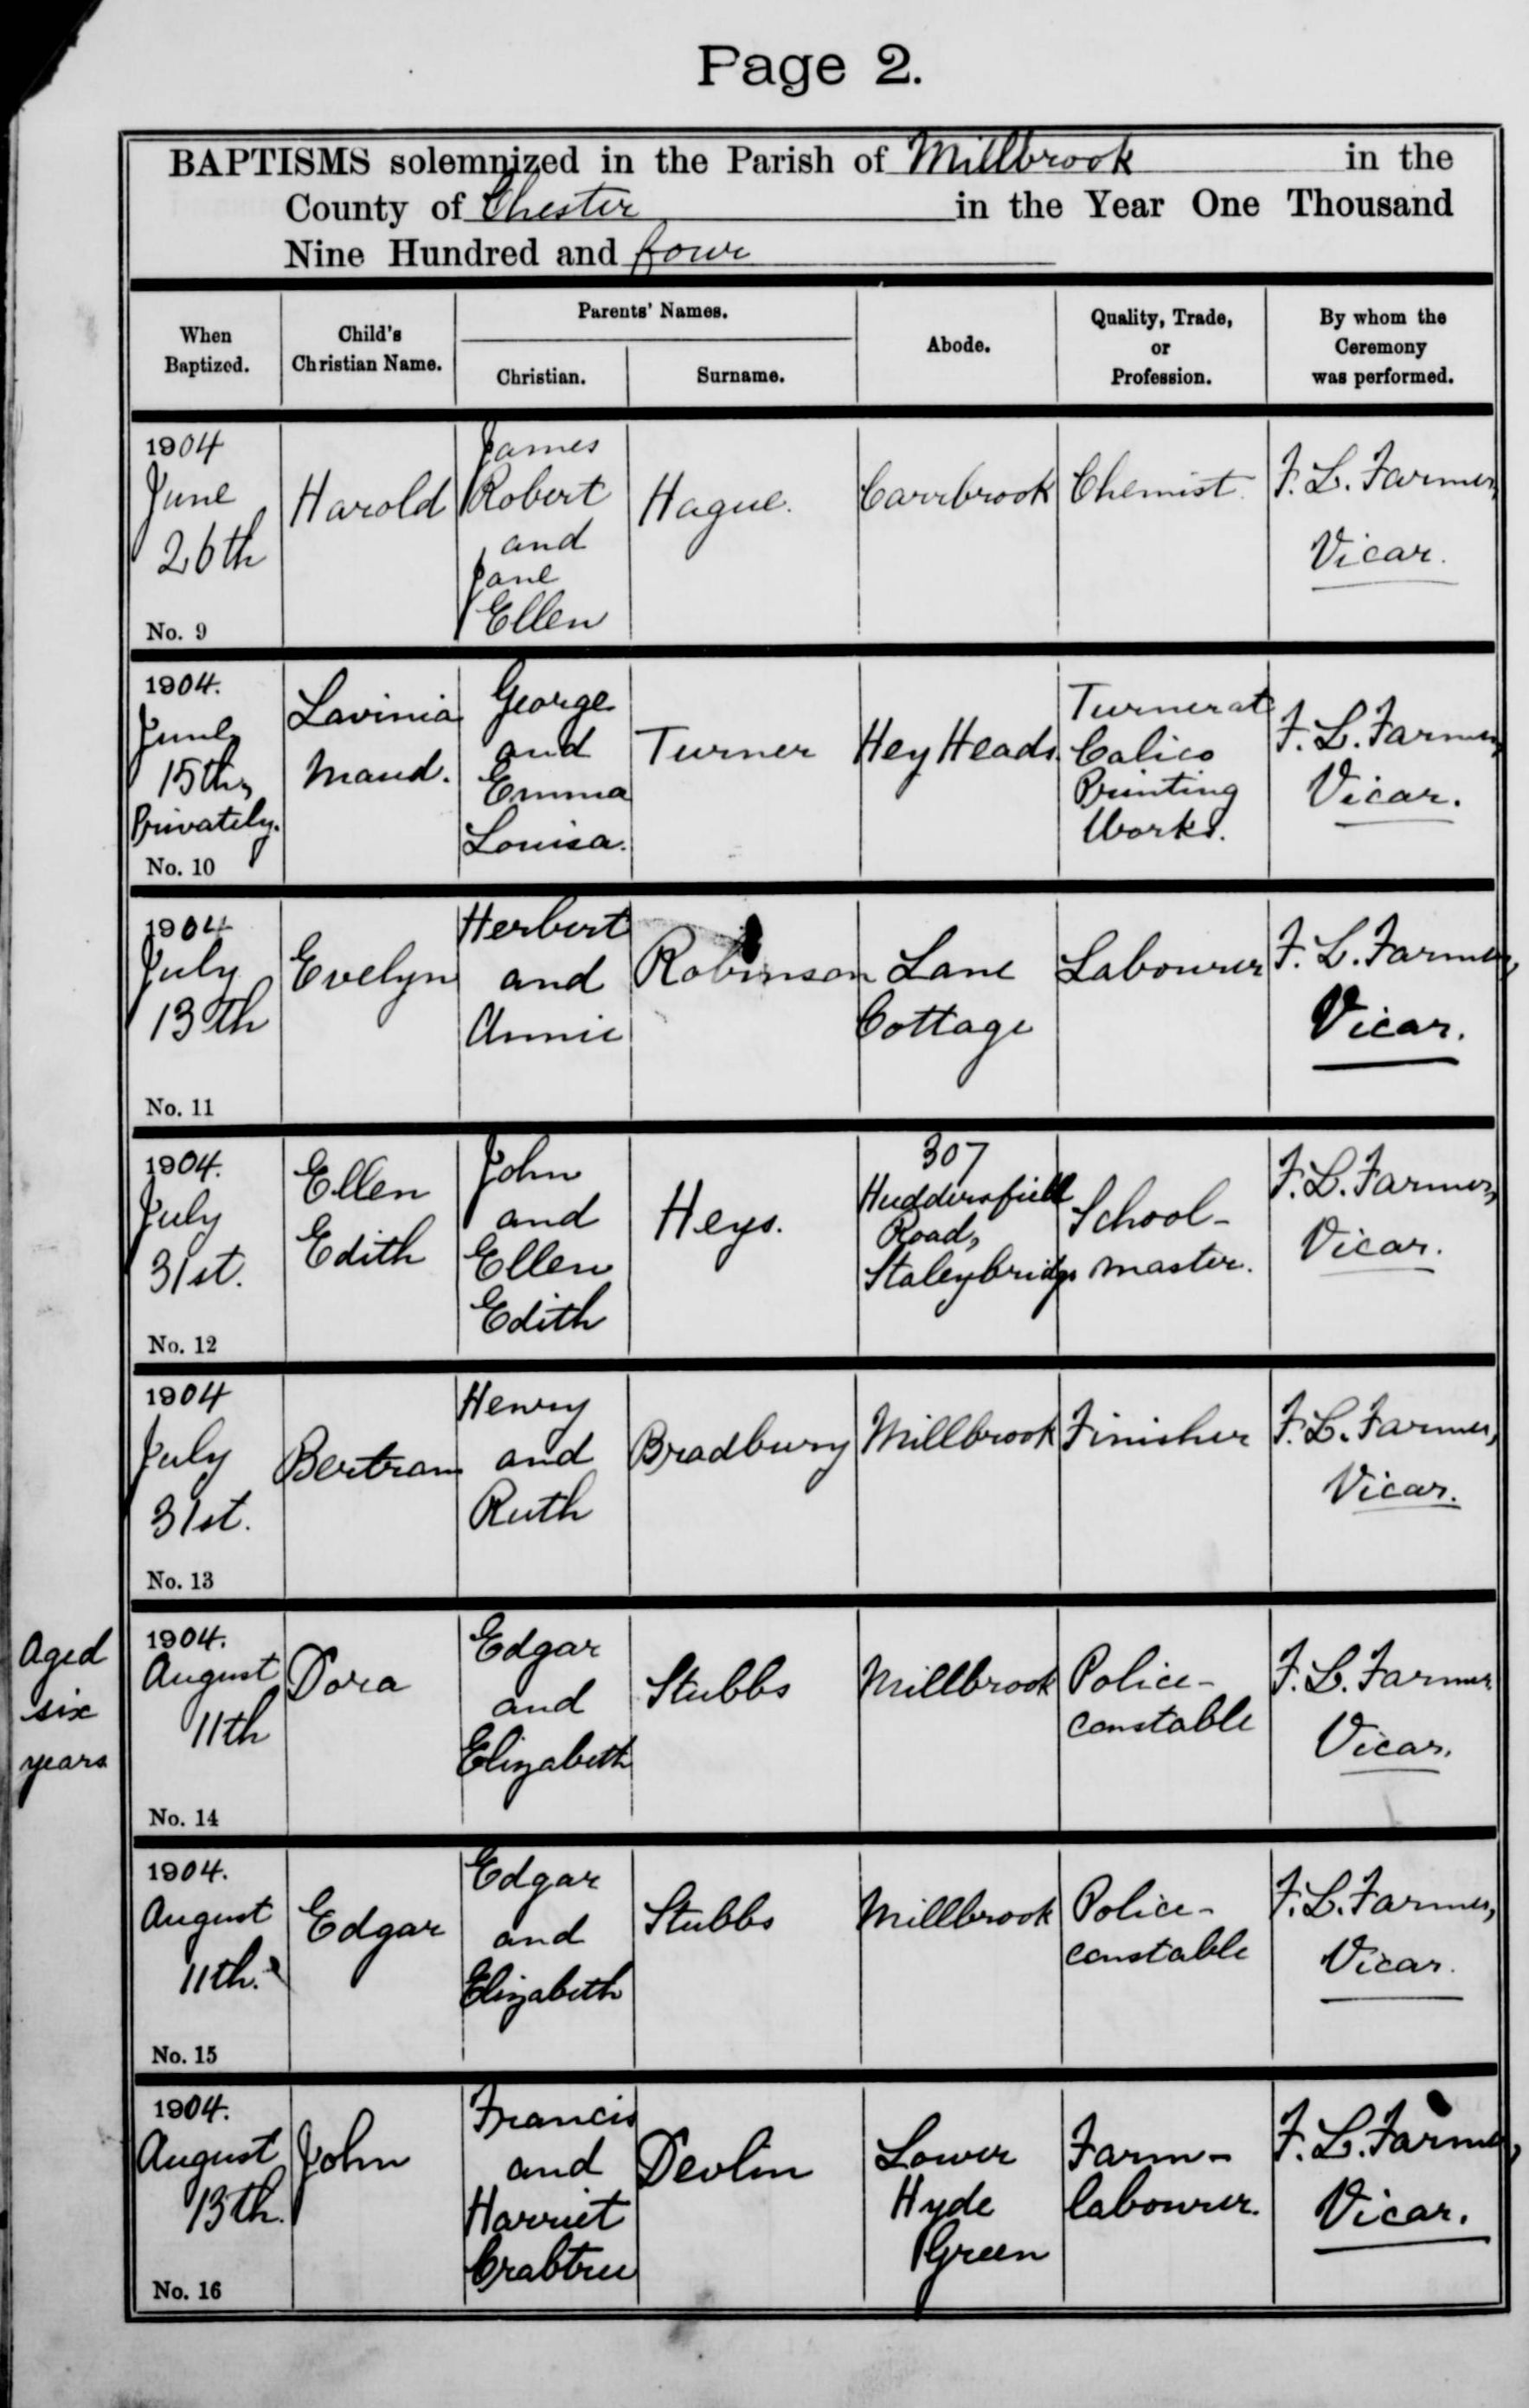 Page 2.
BAPTISMS solemnized in the Parish of Millbrook in the
County of Chester in the Year One Thousand
Nine Hundred and four
When
Baptized.
Child's
Christian Name.
Parents' Names.
Christian.
Surname.
Abode.
Quality, Trade,
or
Profession.
By whom the
Ceremony
was performed.
1904
June
26th
No. 9
Harold
James
Robert
and
Jane
Ellen
Hague.
Carrbrook
Chemist.
F. L. Farmer,
Vicar.
1904.
June
15th,
Privately.
No. 10
Lavinia
Maud.
George
and
Emma
Louisa.
Turner
Hey Heads.
Turner at
Calico
Printing
Works.
F. L. Farmer,
Vicar.
1904
July
13th
No. 11
Evelyn
Herbert
and
Annie
Robinson
Lane
Cottage
Labourer
F. L. Farmer,
Vicar.
1904.
July
31st.
No. 12
Ellen
Edith
John
and
Ellen
Edith
Heys.
307
Huddersfield
Road,
Staleybridge
School-
master.
F. L. Farmer,
Vicar.
1904
July
31st.
No. 13
Bertram
Henry
and
Ruth
Bradbury
Millbrook
Finisher
F. L. Farmer,
Vicar.
Aged
six
years
1904.
August
11th
No. 14
Dora
Edgar
and
Elizabeth
Stubbs
Millbrook
Police-
constable
F. L. Farmer
Vicar.
1904.
August
11th.
No. 15
Edgar
Edgar
and
Elizabeth
Stubbs
Millbrook
Police-
constable
F. L. Farmer,
Vicar.
1904.
August
13th.
No. 16
John
Francis
and
Harriet
Crabtree
Devlin
Lower
Hyde
Green
Farm-
labourer.
F. L. Farmer,
Vicar.